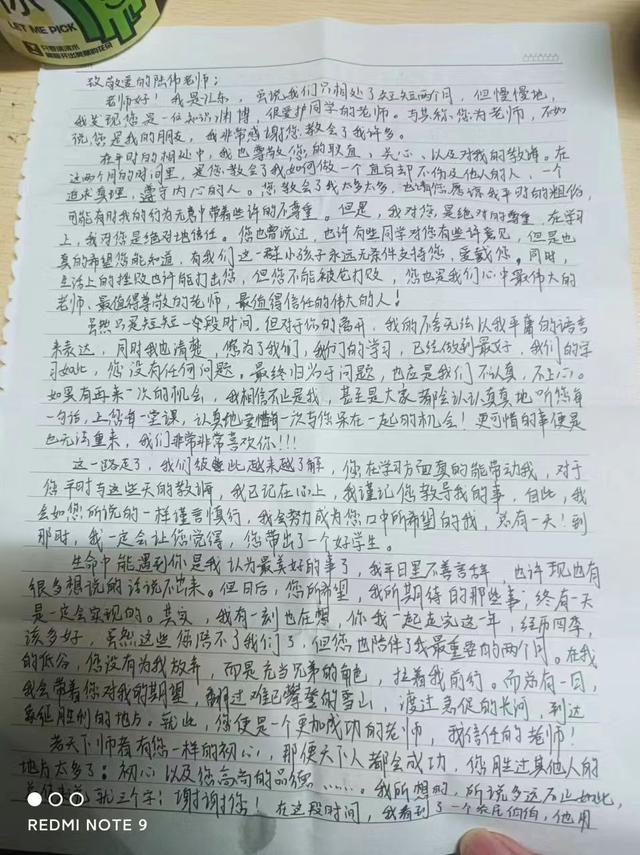 LET ME PICK
致敬爱的陆伟老师：
老师好！我是让乐，虽说我们只相处了短短两个月，但慢慢地，
我发现您是一位知识渊博，很爱护同学的老师。与其称您为老师，不如
说您是我的朋友，我非常感谢您教会了我许多。
在平时的相处中，我也尊敬您的职业，关心，以及对我的教诲。在
这两个月的时间里，是您教会了我如何做一个直白却不伤及他人的人，一个
追求真理，遵守内心的人。您教会了我太多太多，也请您原谅我平时的粗俗，
可能有时我的行为无意中带着些许的不尊重。但是，我对您是绝对的尊重，在学习
上，我对您是绝对地信任。您也曾说过，也许有些同学对您有些许意见，但是也
真的希望您能知道，有我们这一群小孩子永远无条件支持您，爱戴您。同时，
生活上的挫败也许能打击您，但您不能被它打败，您也是我们心中最伟大的
老师、最值得尊敬的老师，最值得信任的伟大的人！
虽然只是短短一段时间，但对于你的离开，我的不舍无法以我平庸的语言
来表达，同时我也清楚，您为了我们，我们的学习，已经做到最好，我们的学
习如此，您没有任何问题。最终归为于问题，也应是我们不认真，不上心。
如果有再来一次的机会，我相信不止是我，甚至是大家都会认认真真地听您每
一句话，上您每一堂课，认真地爱惜每一次与您呆在一起的机会！更可惜的事便是
也无法重来，我们非常非常喜欢你！！！
这一路走了，我们彼此越来越了解，您在学习方面真的能带动我，对于
您平时与这些天的教诲，我已记在心上，我谨记您教导我的事，自此，我
会如您所说的一样谨言慎行，我会努力成为您口中所希望的我，总有一天！到
那时，我一定会让您觉得，您带出了一个好学生。
生命中能遇到你是我认为最美好的事了，我平日里不善言辞，也许现也有
很多想说的话说不出来。但日后，您所希望，我所期待的那些事，终有一天
是一定会实现的。其实，我有一刻也在想，你我一起走完这一年，经历四季，
该多好，虽然这些你陪不了我们了，但您也陪伴了我最重要的两个月。在我
的低谷，您没有为我放弃，而是充当兄弟的角色，拉着我前行。而总有一日，
我会带着您对我的期望，翻过难已攀登的雪山，渡过湍促的长河，到达
象征胜利的地方。就此，您便是一个更加成功的老师，我信任的老师！
若天下师者有您一样的初心，那便天下人都会成功，您胜过其他人的
地方太多了：初心以及您高尚的品德……我所想的，所说多远不止如此，
就三个字：谢谢您！在这段时间，我看到了一个
REDMI NOTE 9